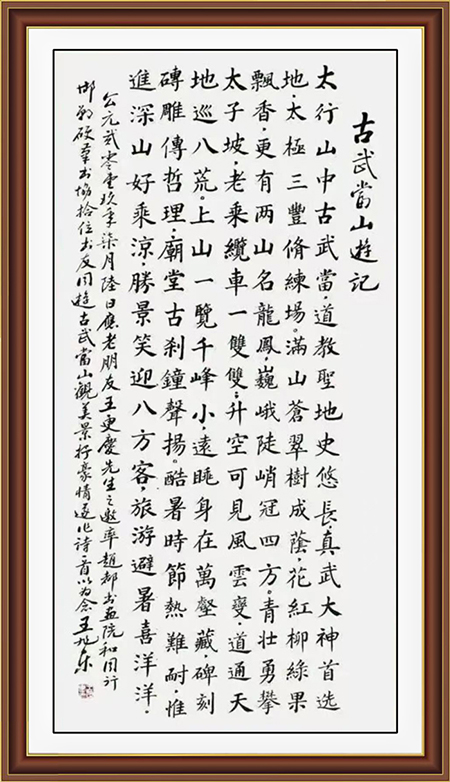 古武當山遊記
太行山中古武當，道教聖地史悠長，真武大神首选
地，太極三豐脩練場。滿山蒼翠樹成蔭，花紅柳綠果
飄香，更有两山名龍鳳，巍峨陡峭冠四方。青壮勇攀
太子坡，老乘纜車一雙雙，升空可見風雲變，道通天
地巡八荒。上山一覽千峰小，遠眺身在萬壑藏，碑刻
磚雕傳哲理，廟堂古刹鐘聲揚。酷暑時節熱難耐，惟
進深山好乘涼，勝景笑迎八方客，旅游避暑喜洋洋，
公元贰零壹玖年柒月陸日應老朋友王更慶先生之邀率趙都书画院和同行
邯郸硬筆书协拾位书友同遊古武當山觀美景抒豪情遂作诗一首以为念王旭东